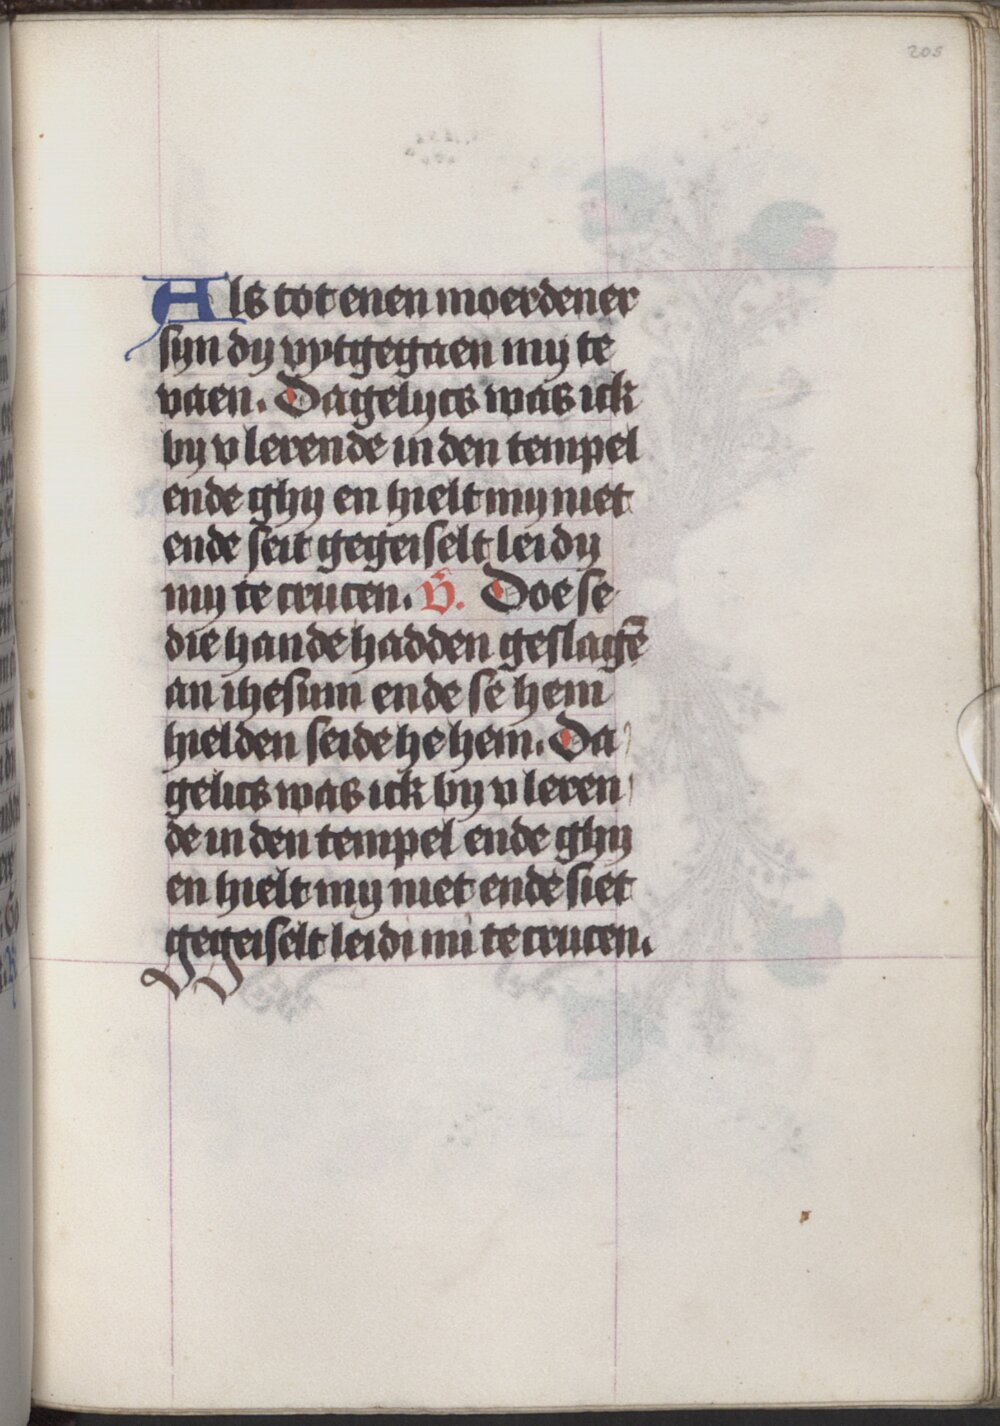 205
Als tot enen moerdener
syn dy vytgegaen my te
vaen. Dagelycs was ick
by v lerende in den tempel
ende ghy en hielt my niet
ende seit gegeiselt leidy
my te crucen. V. Doe se
die hande hadden geslagē
an ihesum ende se hem
hielden seide he hem. Da
gelics was ick by v leren
de in den tempel ende ghy
en hielt my niet ende siet
gegeiselt leidi mi te crucen.